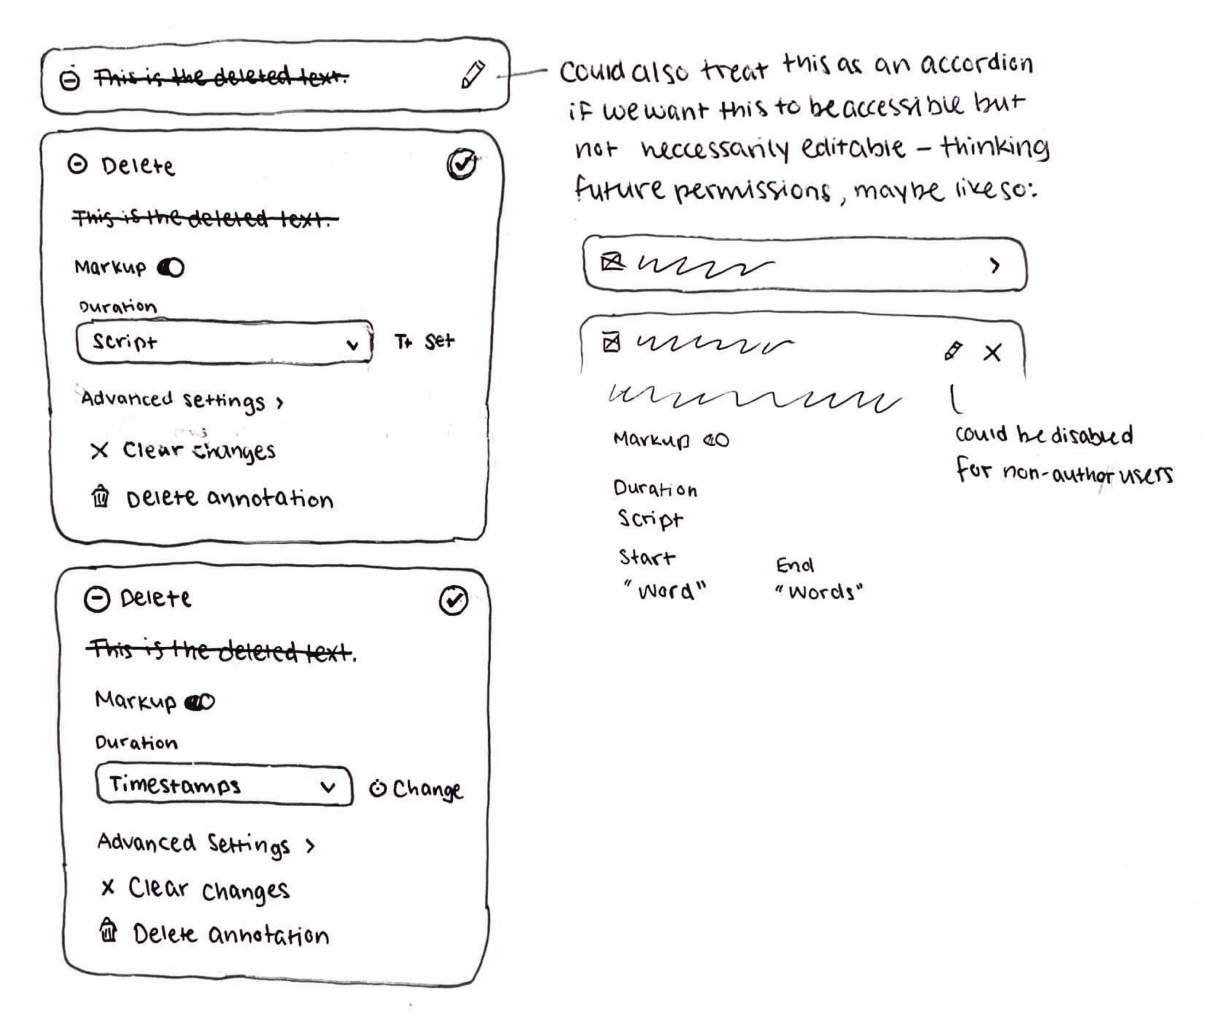 This is the deleted text.
Could also treat this as an accordion
if we want this to be accessible but
not neccessarily editable – thinking
future permissions, maybe like so:
Delete
This is the deleted text.
Markup
Duration
Script
T+ Set
Advanced settings >
X Clear changes
Delete annotation
>
X
Markup
could be disabled
for non-author users
Duration
Script
Start
End
"Word"
"Words"
Delete
This is the deleted text.
Markup
Duration
Timestamps
Change
Advanced Settings >
x Clear changes
Delete annotation